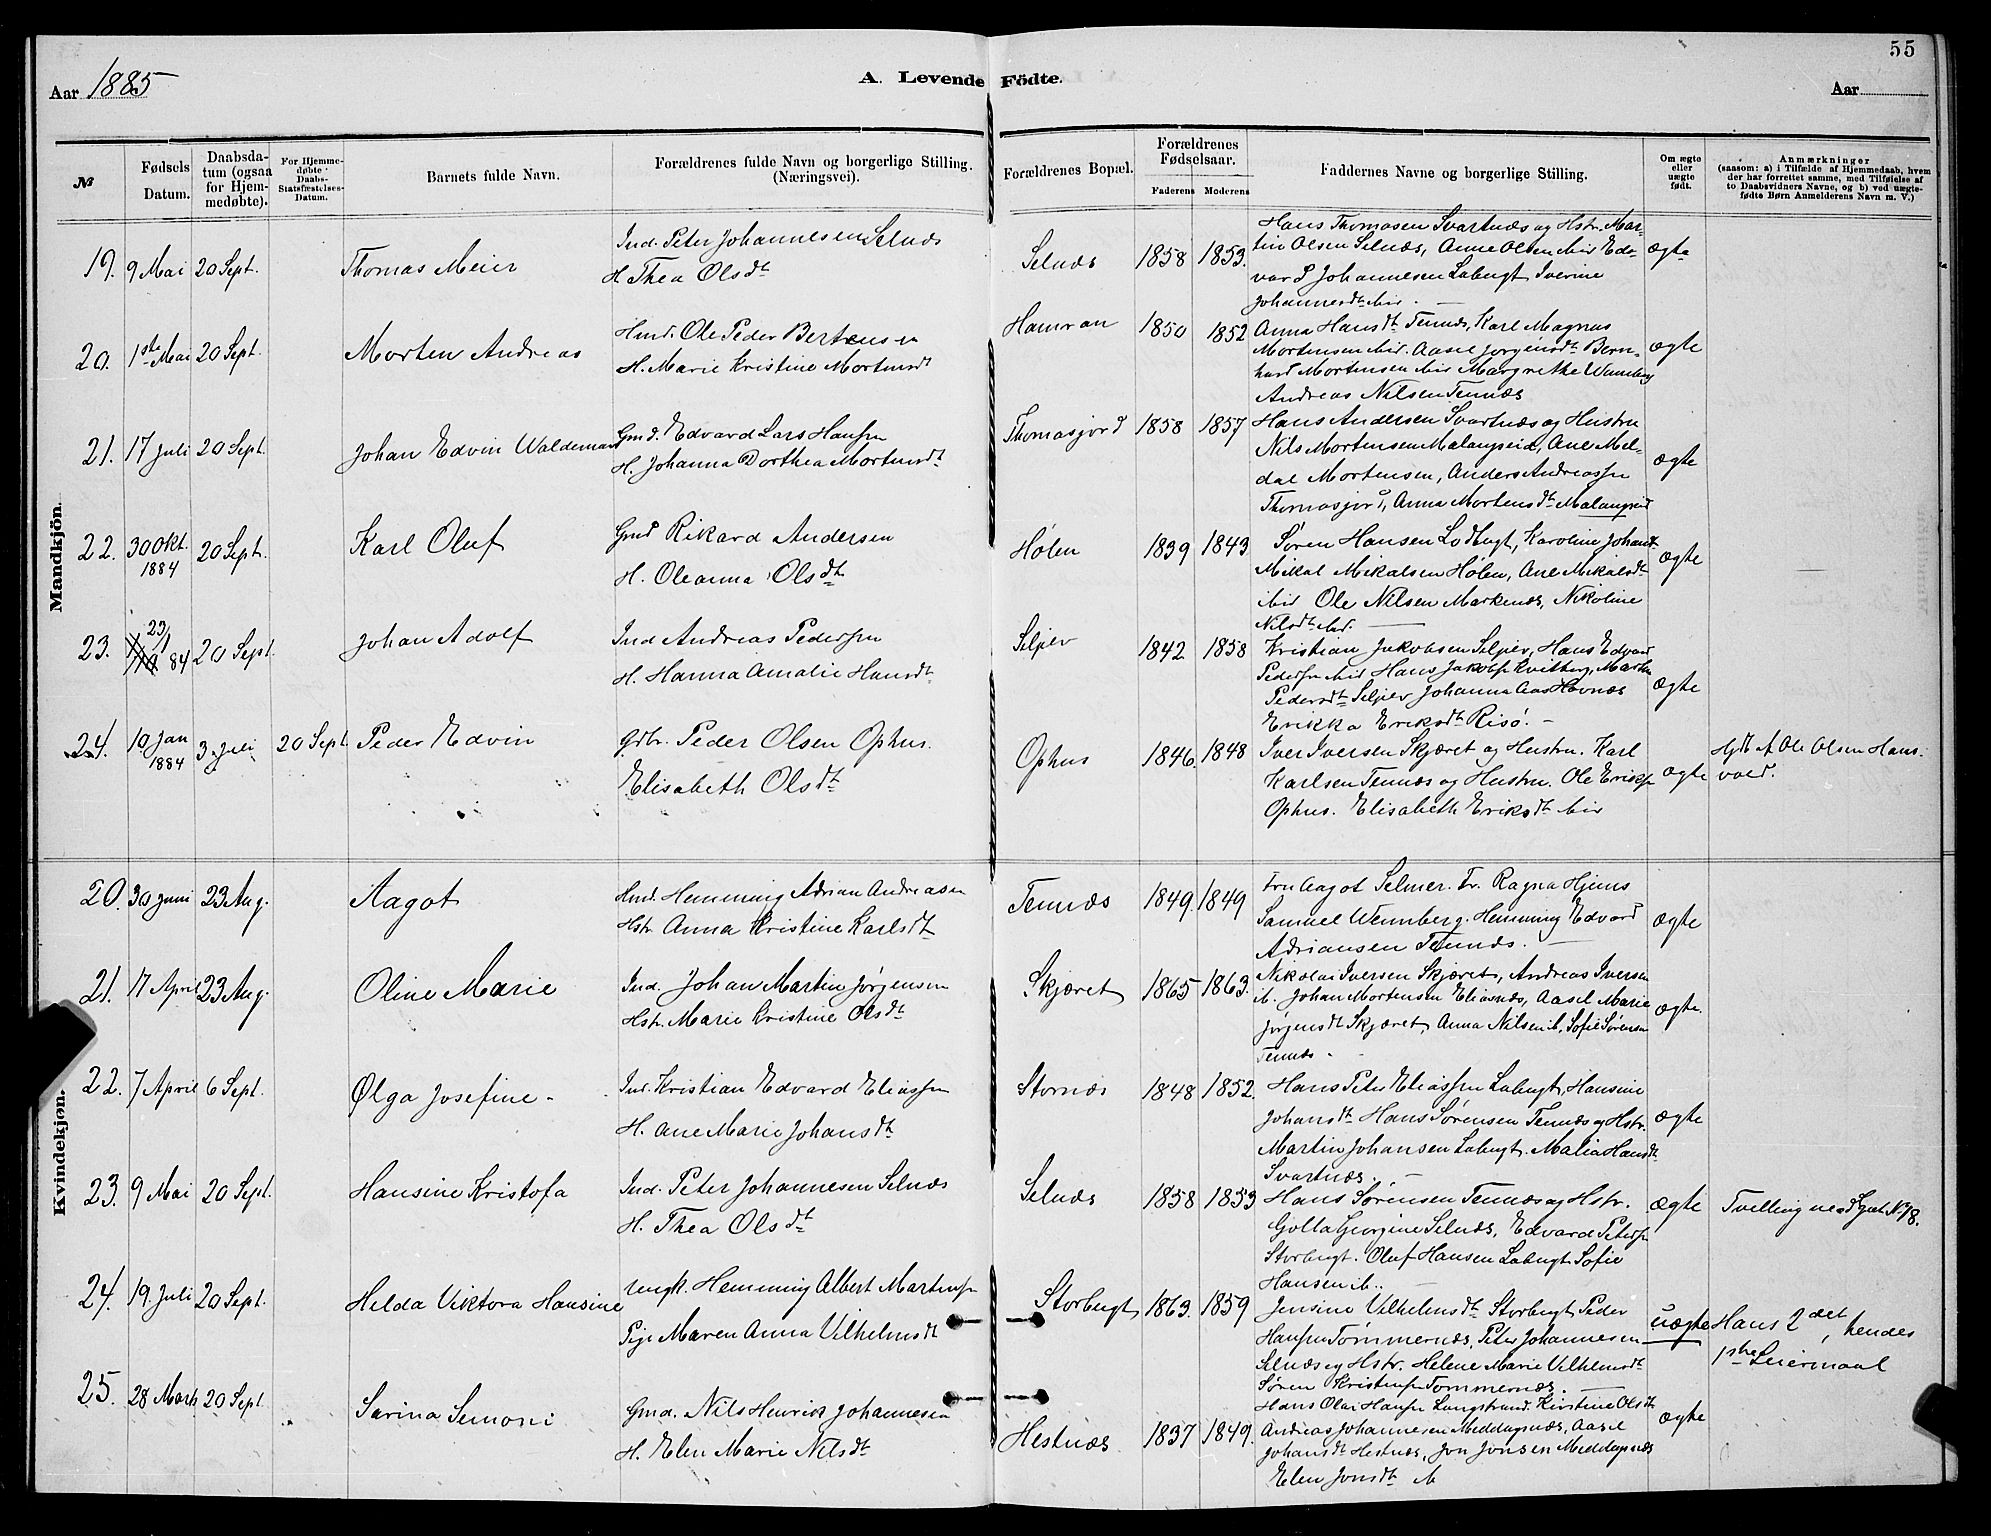 55
Aar 1885
A. Levende Födte.
Aar
№
Fødsels Datum.
Daabsdatum (ogsaa for Hjemmedøbte).
For Hjemmedøbte Daabs-Statsfæstelses-Datum.
Barnets fulde Navn.
Forældrenes fulde Navn og borgerlige Stilling. (Næringsvei).
Forældrenes Bopæl.
Forældrenes Fødselsaar.
Faderens
Moderens
Faddernes Navne og borgerlige Stilling.
Om ægte eller uægte født.
Anmærkninger
(saasom: a) i Tilfælde af Hjemmedaab, hvem
der har forrettet samme, med Tilføielse af
to Daabsvidners Navne, og b) ved uægte-
fødte Børn Anmelderens Navn m. V.)
Mandkjön.
19. 9 Mai 20 Sept. Thomas Meier
Ind. Peter Johannesen Selnæs
H. Thea Olsdt
Selnæs 1858 1853.
Hans Thomasen Svartnæs og Hstr. Mar-
tin Olsen Selnæs, Anne Olsen ibid Ed-
var P Johannesen Labugt Iverine
Johannesdt ibid. —
ægte
20. 1ste Mai 20 Sept. Morten Andreas
Hmd. Ole Peder Bertensen
H. Marie Kristine Mortensdt
Hamran 1850 1852
Anna Hansdt Tennæs, Karl Magnus
Mortensen ibid. Aasel Jørgensdt Bern-
hard Mortensen ibid Margrethe Wennberg
Andreas Nilsen Tennæs
ægte
21. 17 Juli 20 Sept. Johan Edvin Waldemar
Gmd. Edvard Lars Hansen
H. Johanna Dorthea Mortensdt
Thomasjord 1858 1857
Hans Andersen Svartnæs og Hustru
Nils Mortensen Malangseid, Ane Mel-
dal Mortensen, Anders Andreassen
Thomasjord, Anna Mortensdt Malangseid
ægte
22. 30 Okt. 1884 20 Sept. Karl Oluf
Gmd Rikard Andersen
H. Oleanna Olsdt
Hølen 1839 1843
Søren Hansen Lodbugt, Karoline Johansdt
Mikal Mikalsen Hølen, Ane Mikalsdt
ibid Ole Nilsen Markenæs, Nikoline
Nilsdt ibid. —
ægte
23. 23/1 84 20 Sept. Johan Adolf
Ind Andreas Pedersen
H. Hanna Amalie Hansdt
Seljev 1842 1858
Kristian Jakobsen Seljev, Hans Edvard
Pedersen ibid Hans Jakobsen Kvitberg, Martha
Pedersdt Seljev Johanna Aas Havnæs
Erikka Eriksdt Risø. —
ægte
24. 10 Jan 1884 3 Juli 20 Sept Peder Edvin
Gdbr. Peder Olsen Ophus.
Elisabeth Olsdt
Ophus 1846. 1848
Iver Iversen Skjæret og Hustru. Karl
Karlsen Tennæs og Hustru. Ole Eriksen
Ophus. Elisabeth Eriksdt ibid
ægte
Hjdt af Ole Olsen Hans-
vold.
Kvindekjön.
20. 30 Juni 23 Aug. Aagot
Hmd. Hemming Adrian Andreasen
Hstr. Anna Kristine Karlsdt
Tennæs 1849. 1849
Fru Aagot Selmer. Fr. Ragna Hjems
Samuel Wennberg. Hemming Edvard
Adriansen Tennæs. —
ægte
21. 17 April 23 Aug. Oline Marie
Ind. Johan Martin Jørgensen
Hstr. Marie Kristine Olsdt
Skjæret 1865 1863.
Nikolai Iversen Skjæret, Andreas Iversen
ib. Johan Mortensen Eliasnæs, Aasel Marie
Jørgensdt Skjæret, Anna Nilsen ib, Sofie Sørensen
Tennæs.
ægte.
22. 7 April 6 Sept. Olga Josefine
Ind. Kristian Edvard Eliassen
H. Ane Marie Johansdt
Stornæs 1848 1852.
Hans Peter Eliassen Labugt, Hansine
Johansdt Hans Sørensen Tennæs og Hstr.
Martin Johansen Labugt. Malia Hansdt
Svartnæs. —
ægte
23. 9 Mai 20 Sept. Hansine Kristofa
Ind. Peter Johannesen Selnæs
H. Thea Olsdt
Selnæs 1858 1853
Hans Sørensen Tennæs og Hstr.
Golla Georgine Selnæs, Edvard Petersen
Storbugt. Oluf Hansen Labugt Sofie
Hansen ib. —
ægte
24. 19. Juli 20 Sept. Helda Viktora Hansine
ungk. Hemming Albert Martinsen
Pige Maren Anna Vilhelmsdt
Storbugt 1863. 1859
Jensine Vilhelmsdt Storbugt Peder
Hansen Tømmernæs, Peter Johannesen
Selnæs og Hstr. Helene Marie Vilhelmsdt
Søren Kristensen Tømmernæs. —
uægte
Hans 2det, hendes
1ste Leiermaal
25. 28 Marts 20 Sept. Sarina Simoni
Gmd. Nils Henrik Johannesen
H. Elen Marie Nilsdt
Hestnæs 1837 1849.
Hans Olai Hansen Langstrand. Kirstine Olsdt
Andreas Johannesen Meddagsnæs, Aasel
Johansdt Hestnæs, Jon Jonsen Meddagsnæs
Elen Jonsdt ib
ægte